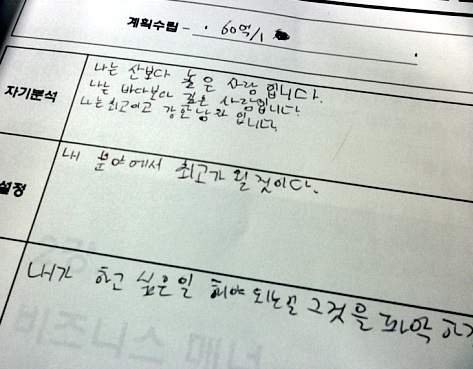 계획수립 - . 60억/1
자기분석
나는 산보다 높은 사람 입니다.
나는 바다보다 깊은 사람입니다.
나는 최고이고 강한 남자 입니다.
설정
내 분야에서 최고가 될 것이다.
내가 하고 싶은일 해야 되는일 그것을 파악 하고
비즈니스 매너